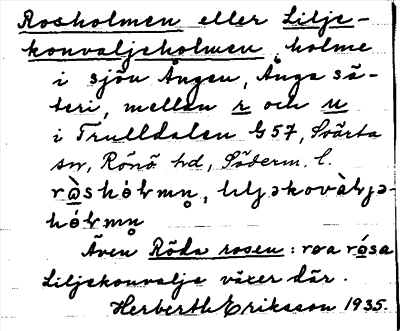 Rosholmen eller Lilje-
konvaljeholmen, holme
i sjön Ången, Ånga sä-
teri, mellan r och u
i Trulldalen G57, Svärta
sn, Rönö hd, Söderm. l.
rὰshólmn̥, lìljəkovàljə-
hólmn̥
Även Röda rosen: røa rósa
Liljekonvalje växer där.
Herberth Eriksson 1935.